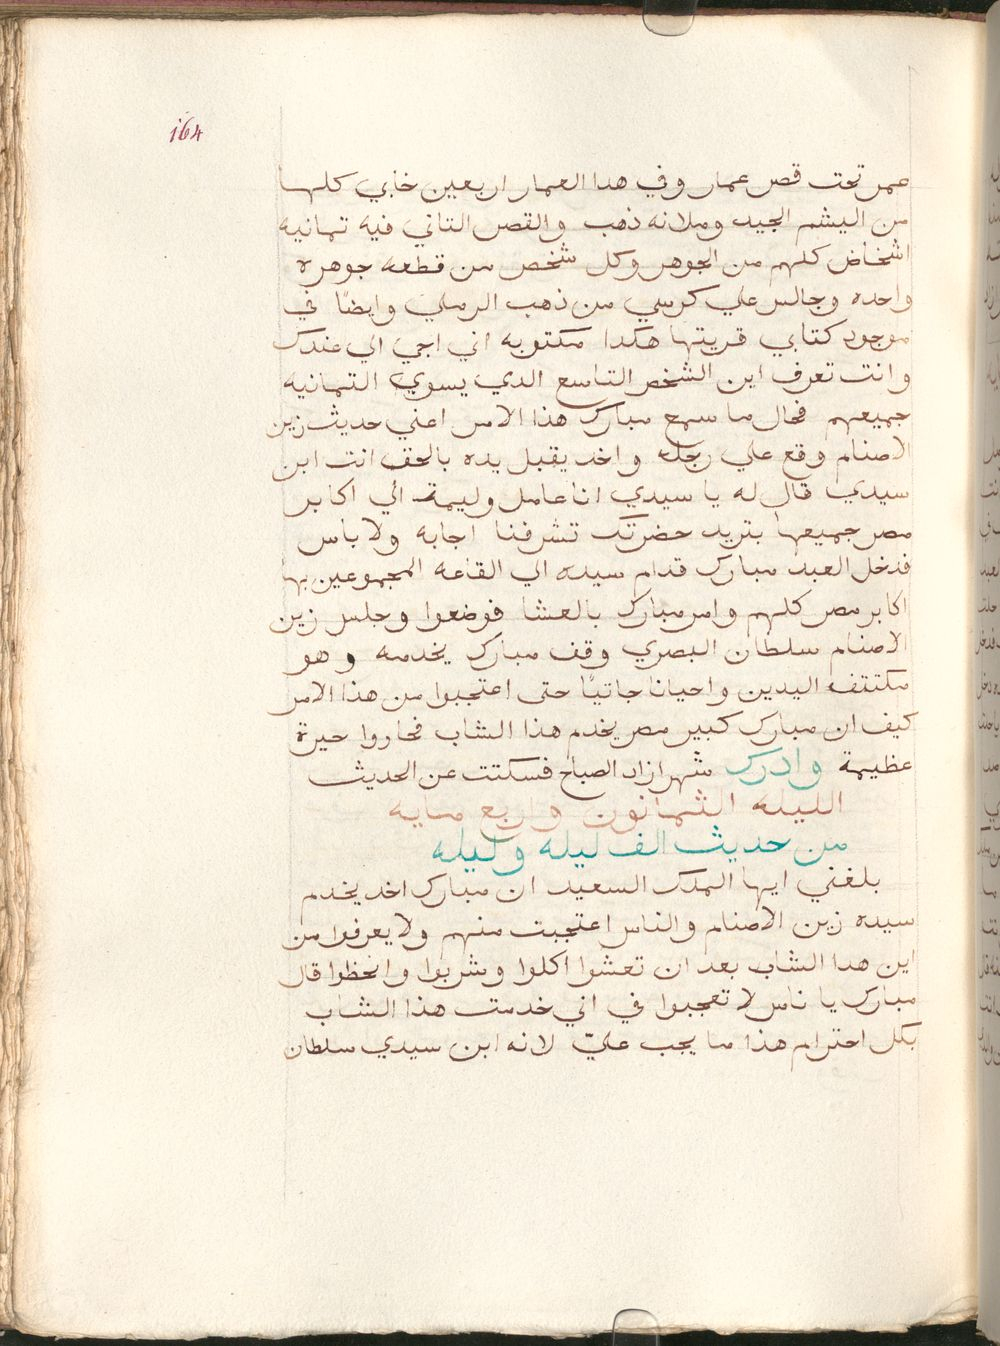 164
عمر تحت قصر عمار وفي هدا العمار اربعين خابي كلها
من اليشم الجيد وملانه ذهب والقصر التاني فيه تمانيه
اشخاض كلهم من الجوهر وكل شخص من قطعه جوهرة
واحده وجالس علي كرسي من ذهب الرملي وايضًا في
موجود كتابي قريتها هكدا مكتوبه اني اجي الي عندك
وانت تعرف اين الشخص التاسع الدي يسوي التمانيه
جميعهم فحال ما سمع مبارك هذا الامر اعني حديث زين
الاصنام وقع علي رجله واخد يقبل يده بالحق انت ابن
سيدي قال له يا سيدي انا عامل وليمة الي اكابر
مصر جميعها بتريد حضرتك تشرفنا اجابه ولا باس
فدخل العبد مبارك قدام سيده الي القاعه المجموعين بها
اكابر مصر كلهم وامر مبارك بالعشا فوضعوا وجلس زين
الاصنام سلطان البصري وقف مبارك يخدمه وهو
مكتتف اليدين واحيانا جاتيًا حتى اعتجبوا من هذا الامر
كيف ان مبارك كبير مصر يخدم هذا الشاب فحاروا حيرة
عظيمة وادرك شهرازاد الصباح فسكتت عن الحديث
الليله الثمانون واربع مايه
من حديث الف ليله وليله
بلغني ايها الملك السعيد ان مبارك اخد يخدم
سيده زين الاصنام والناس اعتجبت منهم ولا يعرفوا من
اين هدا الشاب بعد ان تعشوا اكلوا وشربوا وانحظوا قال
مبارك يا ناس لا تعجبوا في اني خدمت هذا الشاب
بكل احترام هذا ما يجب عليّ لانه ابن سيدي سلطان